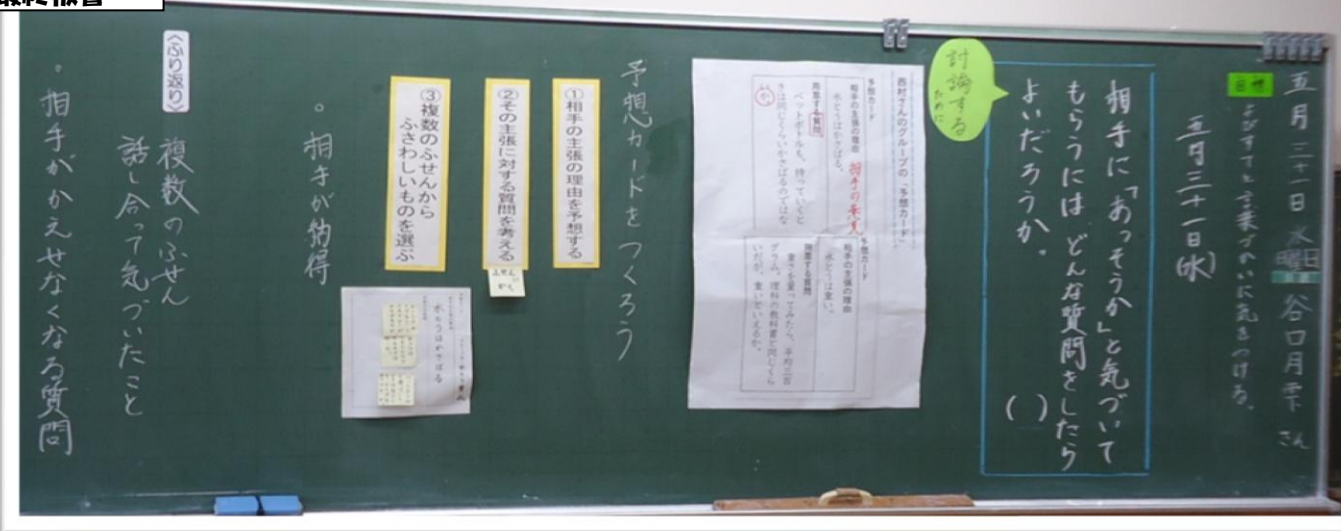 五月三十一日 水曜日 谷口月雫さん
目標
よびすてと言葉づかいに気をつける。
五月三十一日(水)
相手に「あっそうか」と気づいて
もらうには どんな質問をしたら
よいだろうか。
( )
討論する
ために
西村さんのグループの「予想カード」
予想カード
相手の主張の理由
水とうはかさばる。
相手の意見
用意する質問
ペットボトルも、持っていくと
きは同じくらいかさばるのではな
いか。
予想カード
相手の主張の理由
水とうは重い。
用意する質問
重さを量ってみたら、平均三百
グラム。理科の教科書と同じくら
いだが、重いといえるか。
予想カードをつくろう
①相手の主張の理由を予想する
②その主張に対する質問を考える
ふせんに
かく
③複数のふせんから
ふさわしいものを選ぶ
水とうはかさばる
。相手が納得
〈ふり返り〉
複数のふせん
話し合って気づいたこと
。相手がかえせなくなる質問